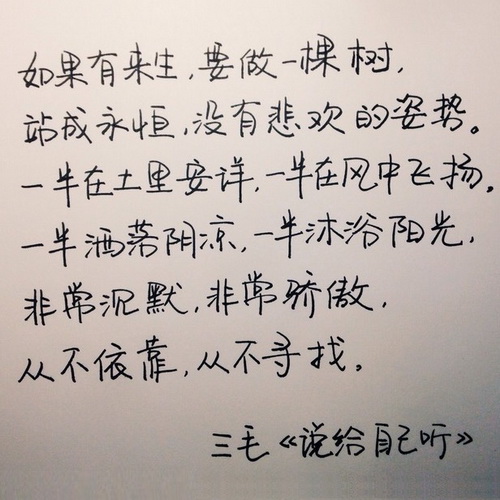 如果有来生，要做一棵树，
站成永恒，没有悲欢的姿势。
一半在土里安详，一半在风中飞扬。
一半洒落阴凉，一半沐浴阳光，
非常沉默，非常骄傲，
从不依靠，从不寻找。
三毛《说给自己听》